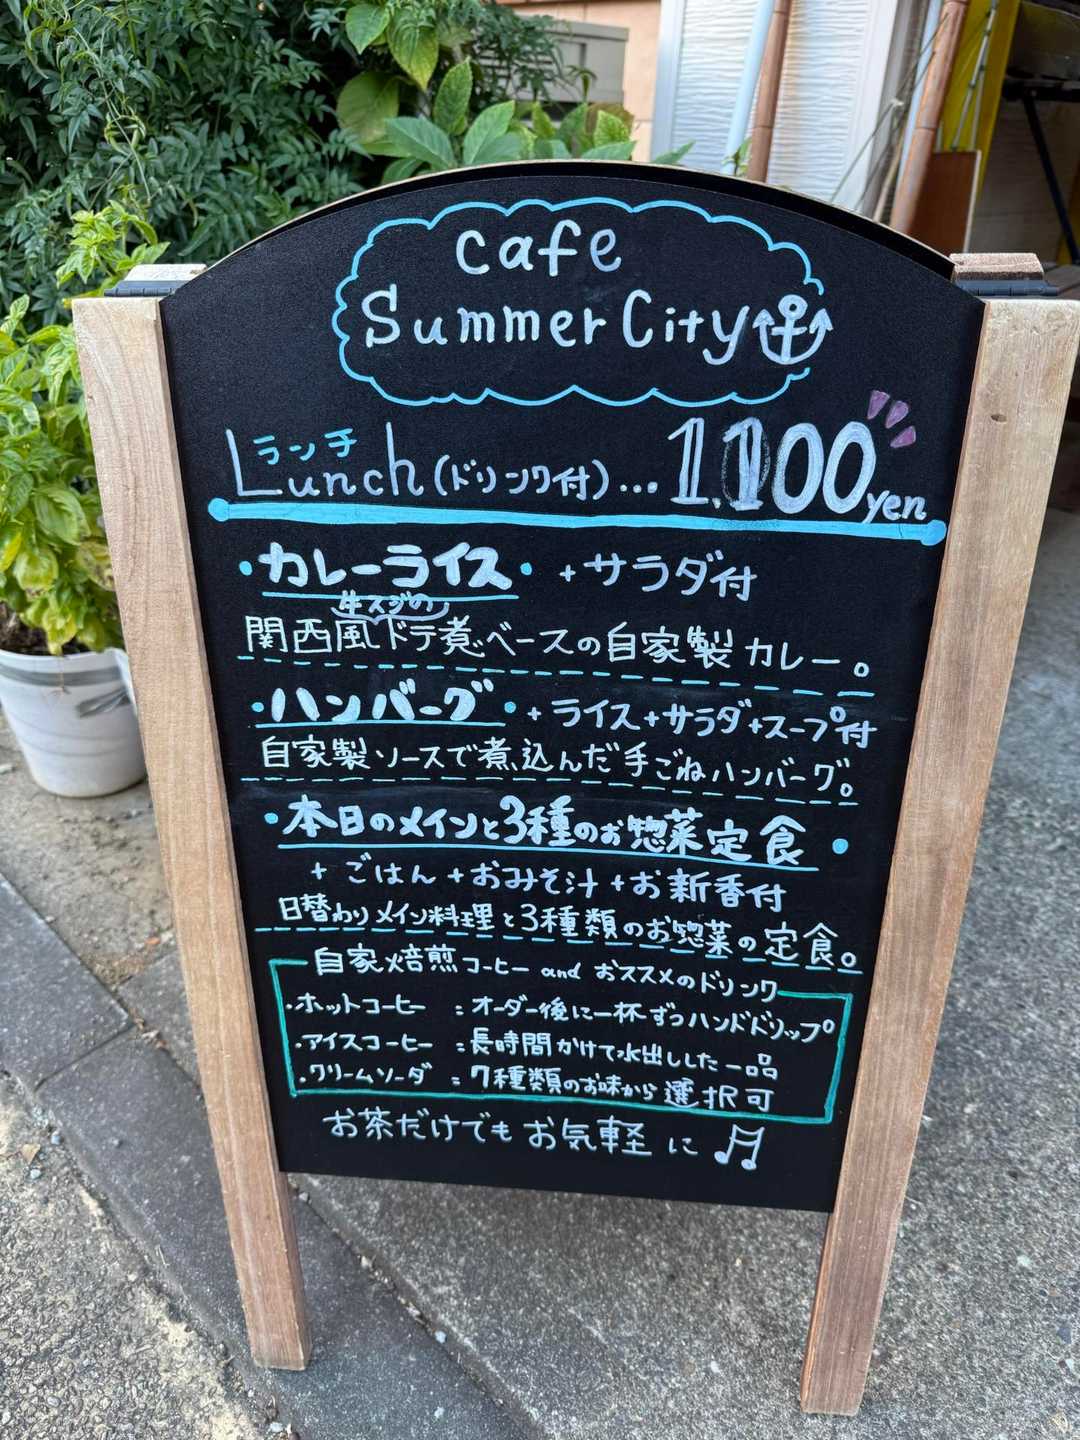 cafe
Summer City
ランチ
Lunch (ドリンク付) ... 1,100yen
・カレーライス・ +サラダ付
牛スジの
関西風ドテ煮ベースの自家製カレー。
・ハンバーグ・ +ライス+サラダ+スープ付
自家製ソースで煮込んだ手ごねハンバーグ。
・本日のメインと3種のお惣菜定食・
+ごはん+おみそ汁+お新香付
日替わりメイン料理と3種類のお惣菜の定食。
自家焙煎コーヒー and おススメのドリンク
・ホットコーヒー : オーダー後に一杯ずつハンドドリップ
・アイスコーヒー : 長時間かけて水出しした一品
・クリームソーダ : 7種類のお味から選択可
お茶だけでもお気軽に♬